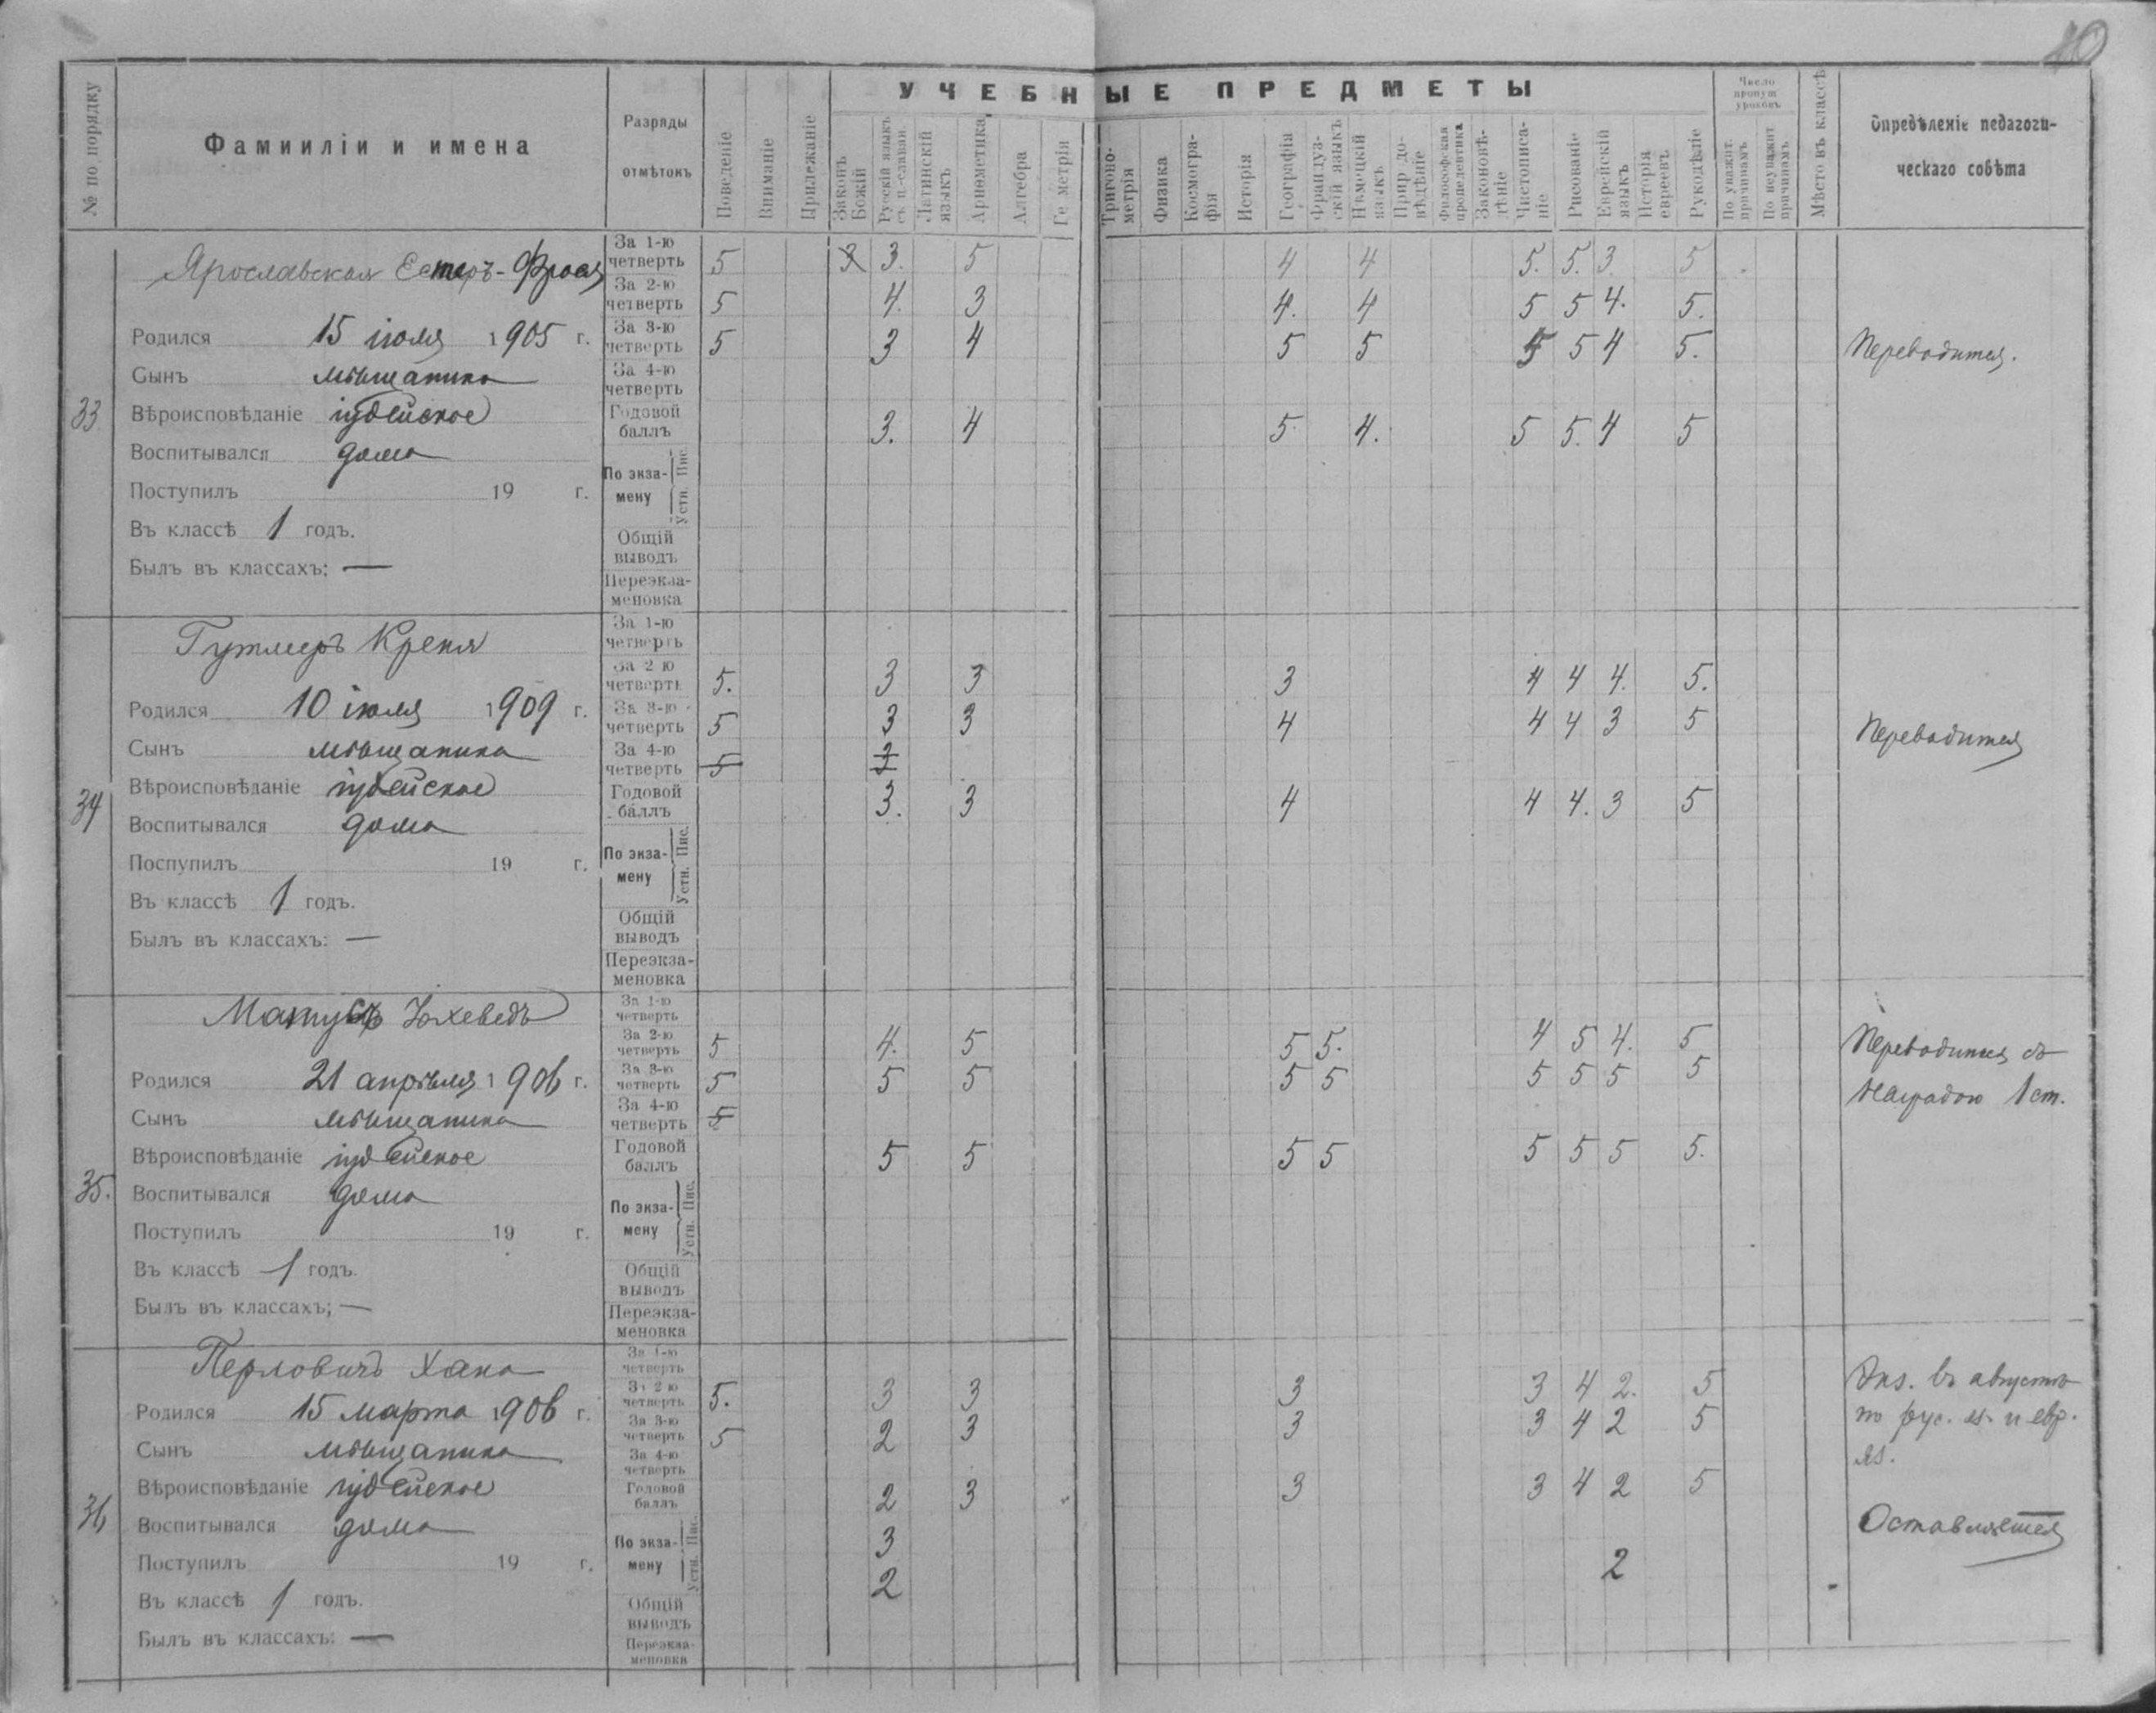 40
УЧЕБНЫЕ ПРЕДМЕТЫ
№ по порядку
Фамииліи и имена
Разряды отмѣтокъ
Поведеніе
Вниманіе
Прилежаніе
Законъ Божій
Русскій языкъ съ ц.-славян.
Латинскій языкъ
Ариѳметика
Алгебра
Геметрія
Тригоно-метрія
Физика
Космогра-фія
Исторія
Географія
Француз-скій языкъ
Нѣмецкій языкъ
Прир до-вѣдѣніе
Философская пропедевтика
Законовѣ-дѣніе
Чистописа-ніе
Рисованіе
Еврейскій языкъ
Исторія евреевъ
Рукодѣліе
Число пропущ уроковъ
По уважит. причинамъ
По неуважит причинамъ
Мѣсто въ классѣ
Опредѣленіе педагоги-
ческаго совѣта
33
Ярославская Естеръ-Фрося
Родился 15 іюля 1905 г.
Сынъ мѣщанина
Вѣроисповѣданіе іудейское
Воспитывался дома
Поступилъ 19 г.
Въ классѣ 1 годъ.
Былъ въ классахъ; —
За 1-ю четверть 5 3. 5 4 4 5. 5. 3. 5
За 2-ю четверть 5 4. 3 4. 4 5 5 4. 5.
За 3-ю четверть 5 3 4 5 5 5 5 4 5.
За 4-ю четверть
Годовой баллъ 3. 4 5. 4. 5 5. 4 5
По экза-мену Пис. Устн.
Общій выводъ
Переэкза-меновка
Переводится.
34
Гутлеръ Креня
Родился 10 іюля 1909 г.
Сынъ мѣщанина
Вѣроисповѣданіе іудейское
Воспитывался дома
Поспупилъ 19 г.
Въ классѣ 1 годъ.
Былъ въ классахъ: —
За 1-ю четверть
За 2 ю четверть 5. 3 3 3 4 4 4. 5.
За 3-ю четверть 5 3 3 4 4 4 3 5
За 4-ю четверть 5 3
Годовой баллъ 3. 3 4 4 4. 3 5
По экза-мену Пис. Устн.
Общій выводъ
Переэкза-меновка
Переводится
35.
Матусъ Іохеведъ
Родился 21 апрѣля 1906 г.
Сынъ мѣщанина
Вѣроисповѣданіе іудейское
Воспитывался дома
Поступилъ 19 г.
Въ классѣ 1 годъ.
Былъ въ классахъ; —
За 1-ю четверть
За 2-ю четверть 5 4. 5 5 5. 4 5 4. 5
За 3-ю четверть 5 5 5 5 5 5 5 5 5
За 4-ю четверть 5
Годовой баллъ 5 5 5 5 5 5 5 5.
По экза-мену Пис. Устн.
Общій выводъ
Переэкза-меновка
Переводится съ
наградою 1 ст.
36
Перловичъ Хана
Родился 15 марта 1906 г.
Сынъ мѣщанина
Вѣроисповѣданіе іудейское
Воспитывался дома
Поступилъ 19 г.
Въ классѣ 1 годъ.
Былъ въ классахъ: —
За 1-ю четверть
За 2 ю четверть 5. 3 3 3 3 4 2. 5
За 3-ю четверть 5 2 3 3 3 4 2 5
За 4-ю четверть
Годовой баллъ 2 3 3 3 4 2 5
По экза-мену Пис. 3
Устн. 2 2
Общій выводъ
Переэкза-меновка
Экз. въ августѣ
по рус. яз. и евр.
яз.
Оставляется